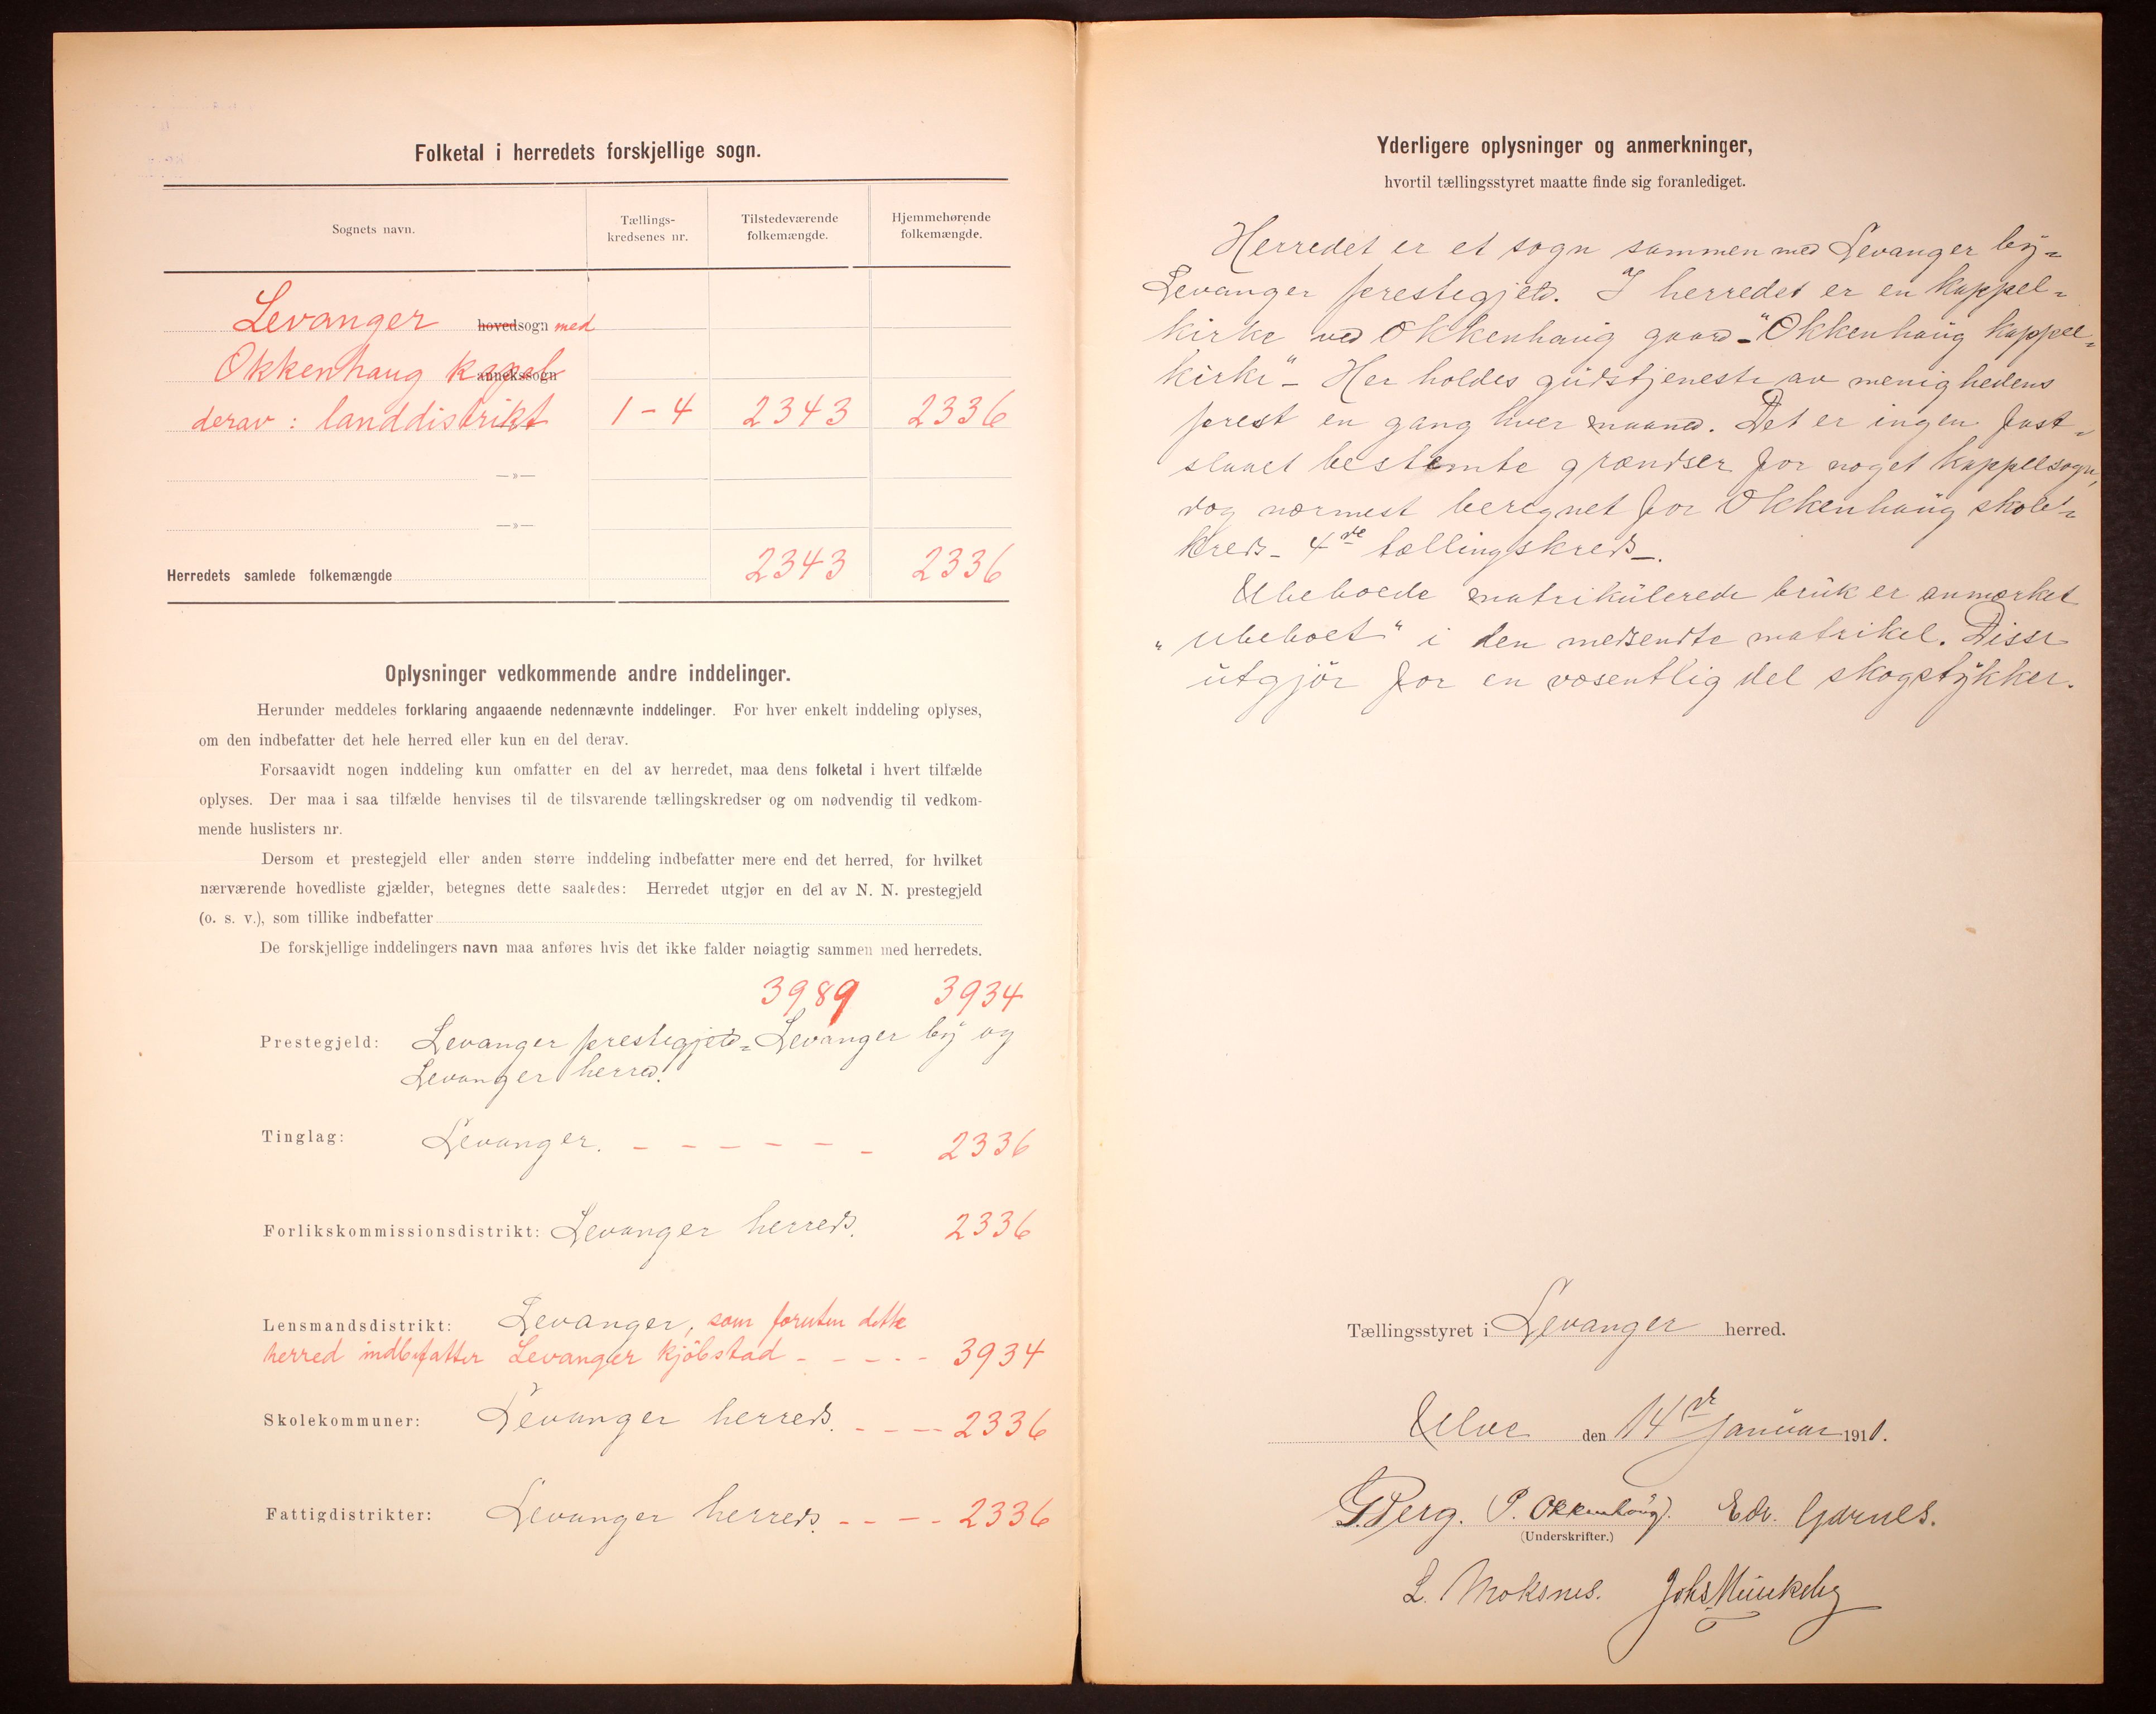 Folketal i herredets forskjellige sogn.
Sognets navn.
Tællings-
kredsenes nr.
Tilstedeværende
folkemængde.
Hjemmehørende
folkemængde.
Levanger hovedsogn med
Okkenhaug Kapel annekssogn
derav: landdistrikt 1-4 2343 2336
—»—
—»—
Herredets samlede folkemængde 2343 2336
Oplysninger vedkommende andre inddelinger.
Herunder meddeles forklaring angaaende nedennævnte inddelinger. For hver enkelt inddeling oplyses,
om den indbefatter det hele herred eller kun en del derav.
Forsaavidt nogen inddeling kun omfatter en del av herredet, maa dens folketal i hvert tilfælde
oplyses. Der maa i saa tilfælde henvises til de tilsvarende tællingskredser og om nødvendig til vedkom-
mende huslisters nr.
Dersom et prestegjeld eller anden større inddeling indbefatter mere end det herred, for hvilket
nærværende hovedliste gjælder, betegnes dette saaledes: Herredet utgjør en del av N. N. prestegjeld
(o. s. v.), som tillike indbefatter
De forskjellige inddelingers navn maa anføres hvis det ikke falder nøiagtig sammen med herredets.
3989 3934
Prestegjeld: Levanger prestegjeld = Levanger by og
Levanger herred.
Tinglag: Levanger. - - - - - - 2336
Forlikskommissionsdistrikt: Levanger herreds. 2336
Lensmandsdistrikt: Levanger, som foruten dette
herred indbefatter Levanger kjöbstad - - - - - 3934
Skolekommuner: Levanger herreds. - - - - 2336
Fattigdistrikter: Levanger herreds. - - - - 2336
Yderligere oplysninger og anmerkninger,
hvortil tællingsstyret maatte finde sig foranlediget.
Herredet er et sogn sammen med Levanger by =
Levanger prestegjeld. I herredet er en kappel=
kirke ved Okkenhaug gaard - "Okkenhaug kappel=
kirke" - Her holdes gudstjeneste av menighedens
prest en gang hver maaned. Det er ingen fast=
slaaet bestemte grændser for noget kappelsogn,
dog nærmest beregnet for Okkenhaug skole=
kreds - 4de tællingskreds -.
Ubeboede matrikulerede bruk er anmærket
"ubeboet" i den medsendte matrikel. Disse
utgjör for en væsentlig del skogstykker.
Tællingsstyret i Levanger herred.
Ulve den 14de Januar 1911.
G. Berg. P. Okkenhaug. Edv. Garnes.
(Underskrifter.)
L. Moksnes. Johs Munkeby